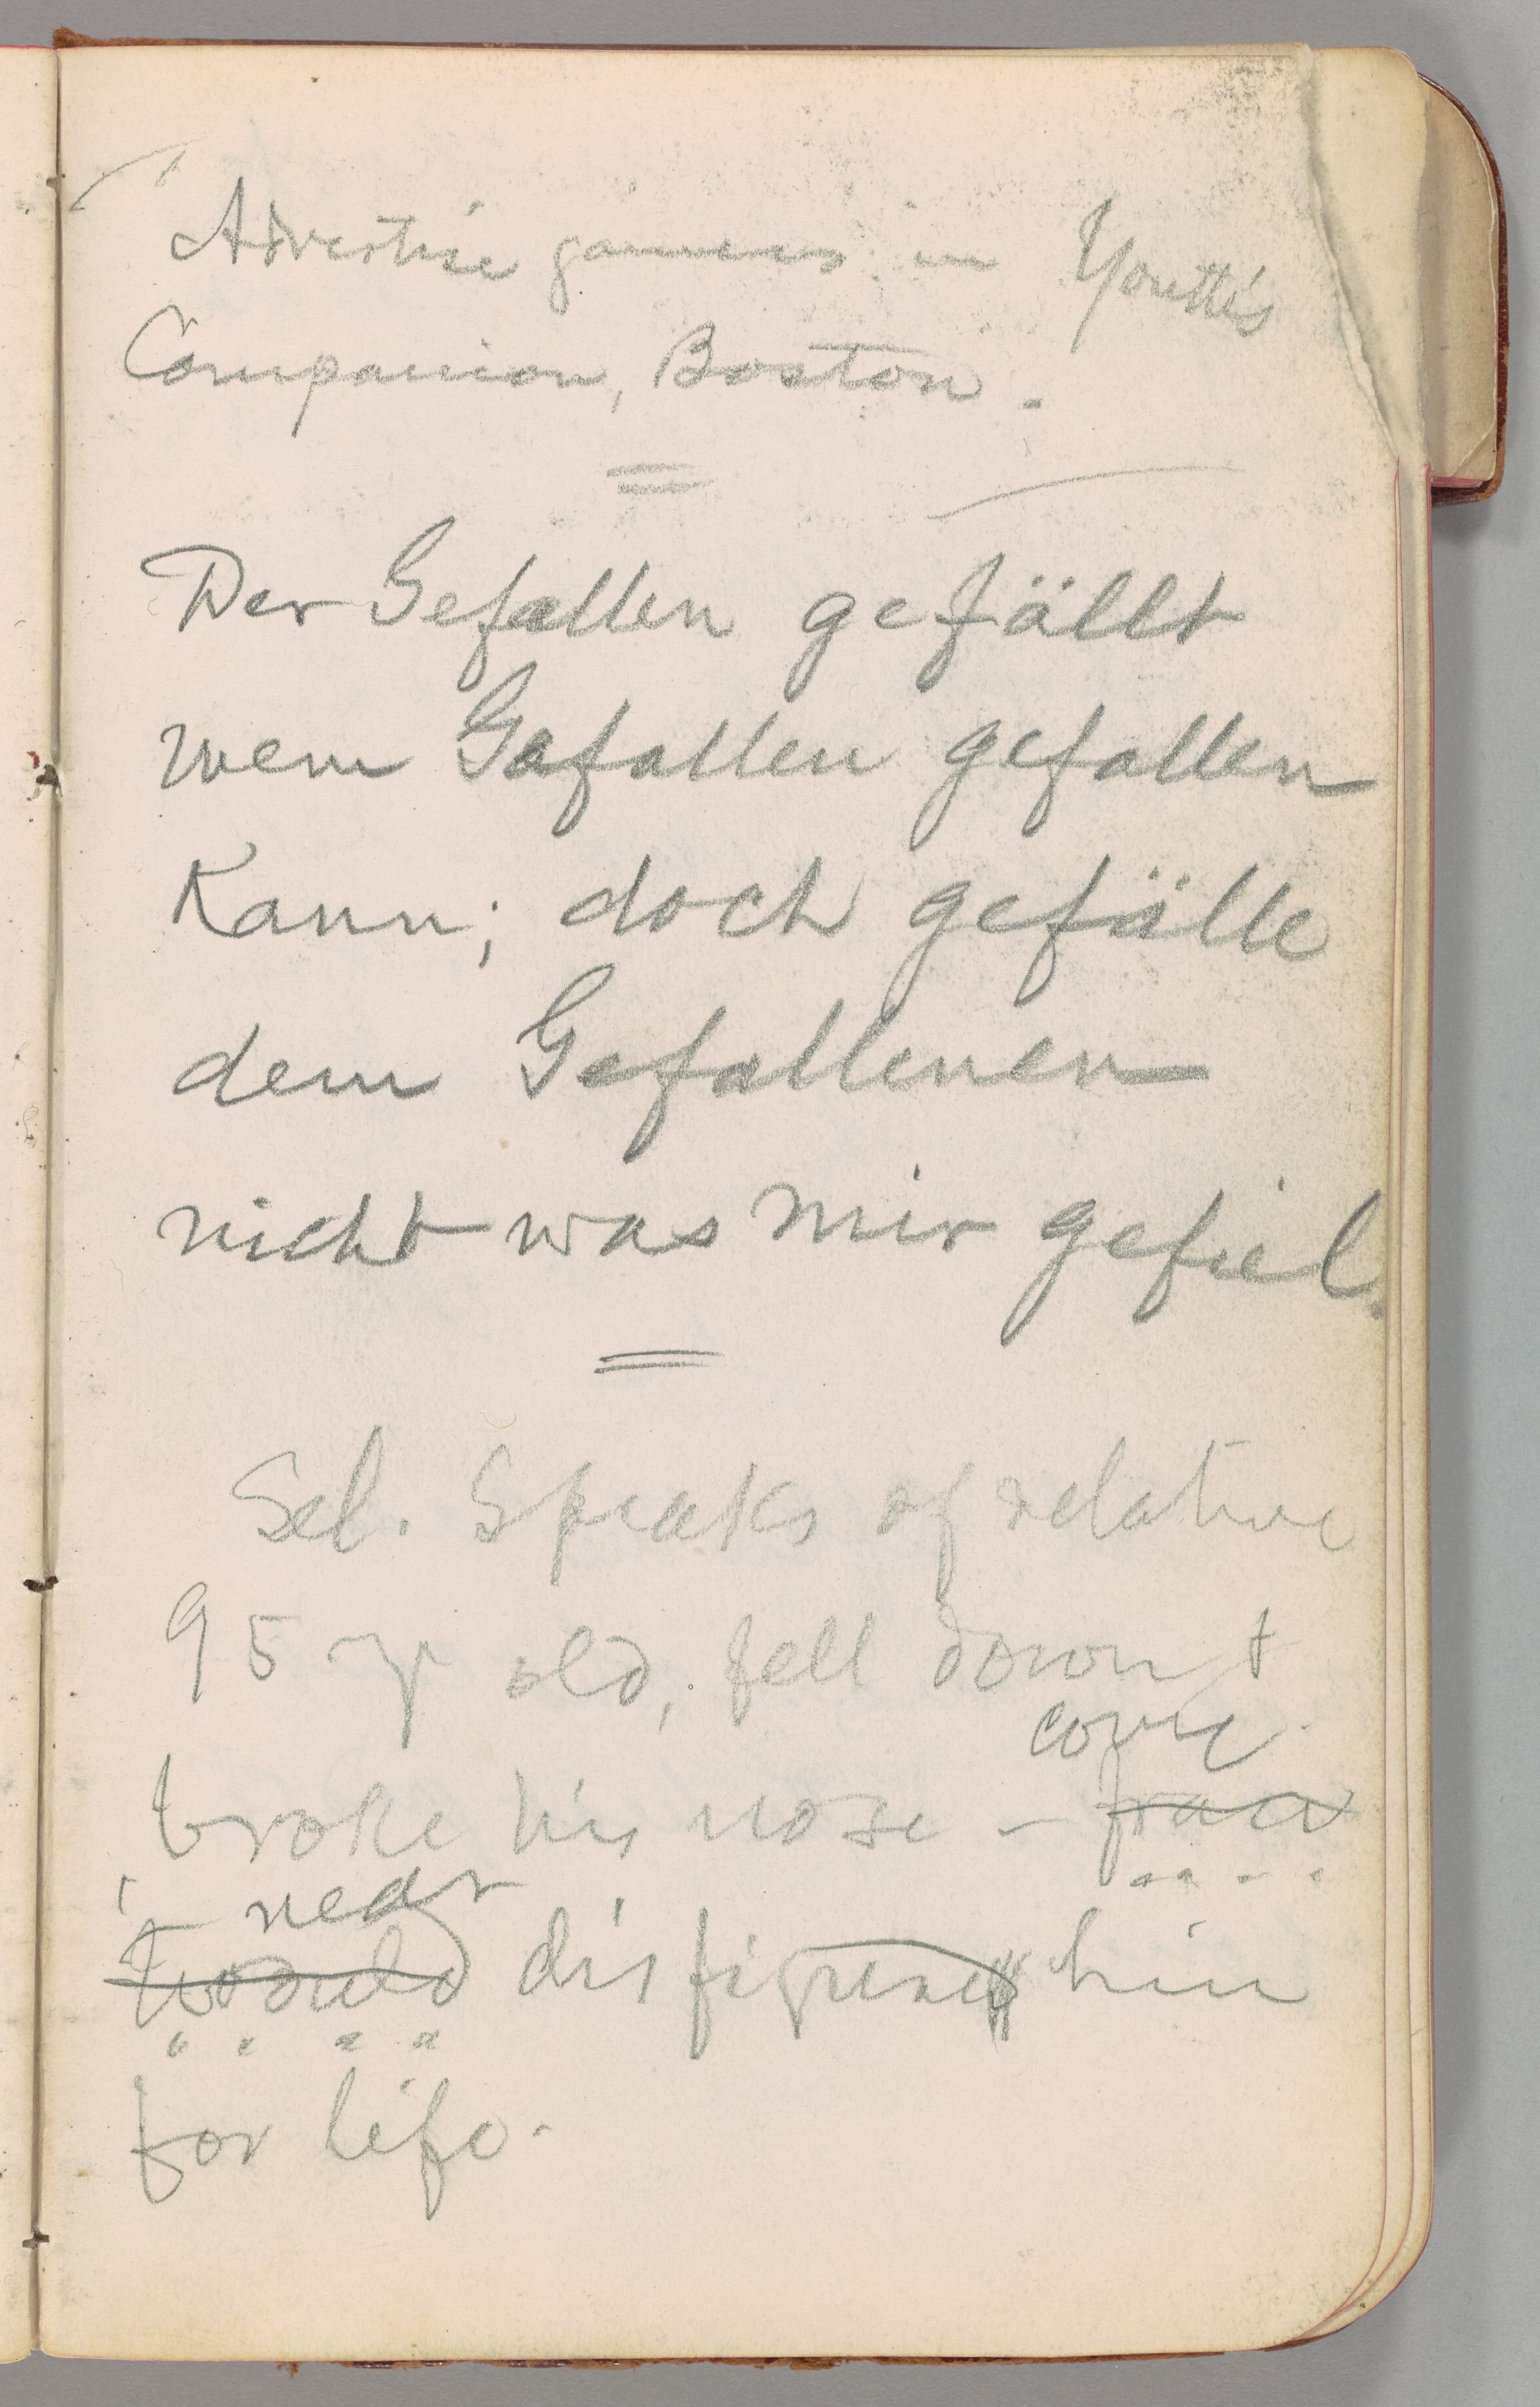 Advertise games in Youth's
Companion, Boston.
Der Gefallen gefällt
wem Gefallen gefallen
kann; doch gefälle
dem Gefallenen
nicht was mir gefiel.
Sel. speaks of relative
95 yr old, fell down &
broke his nose –
near
would disfigure him
for life.